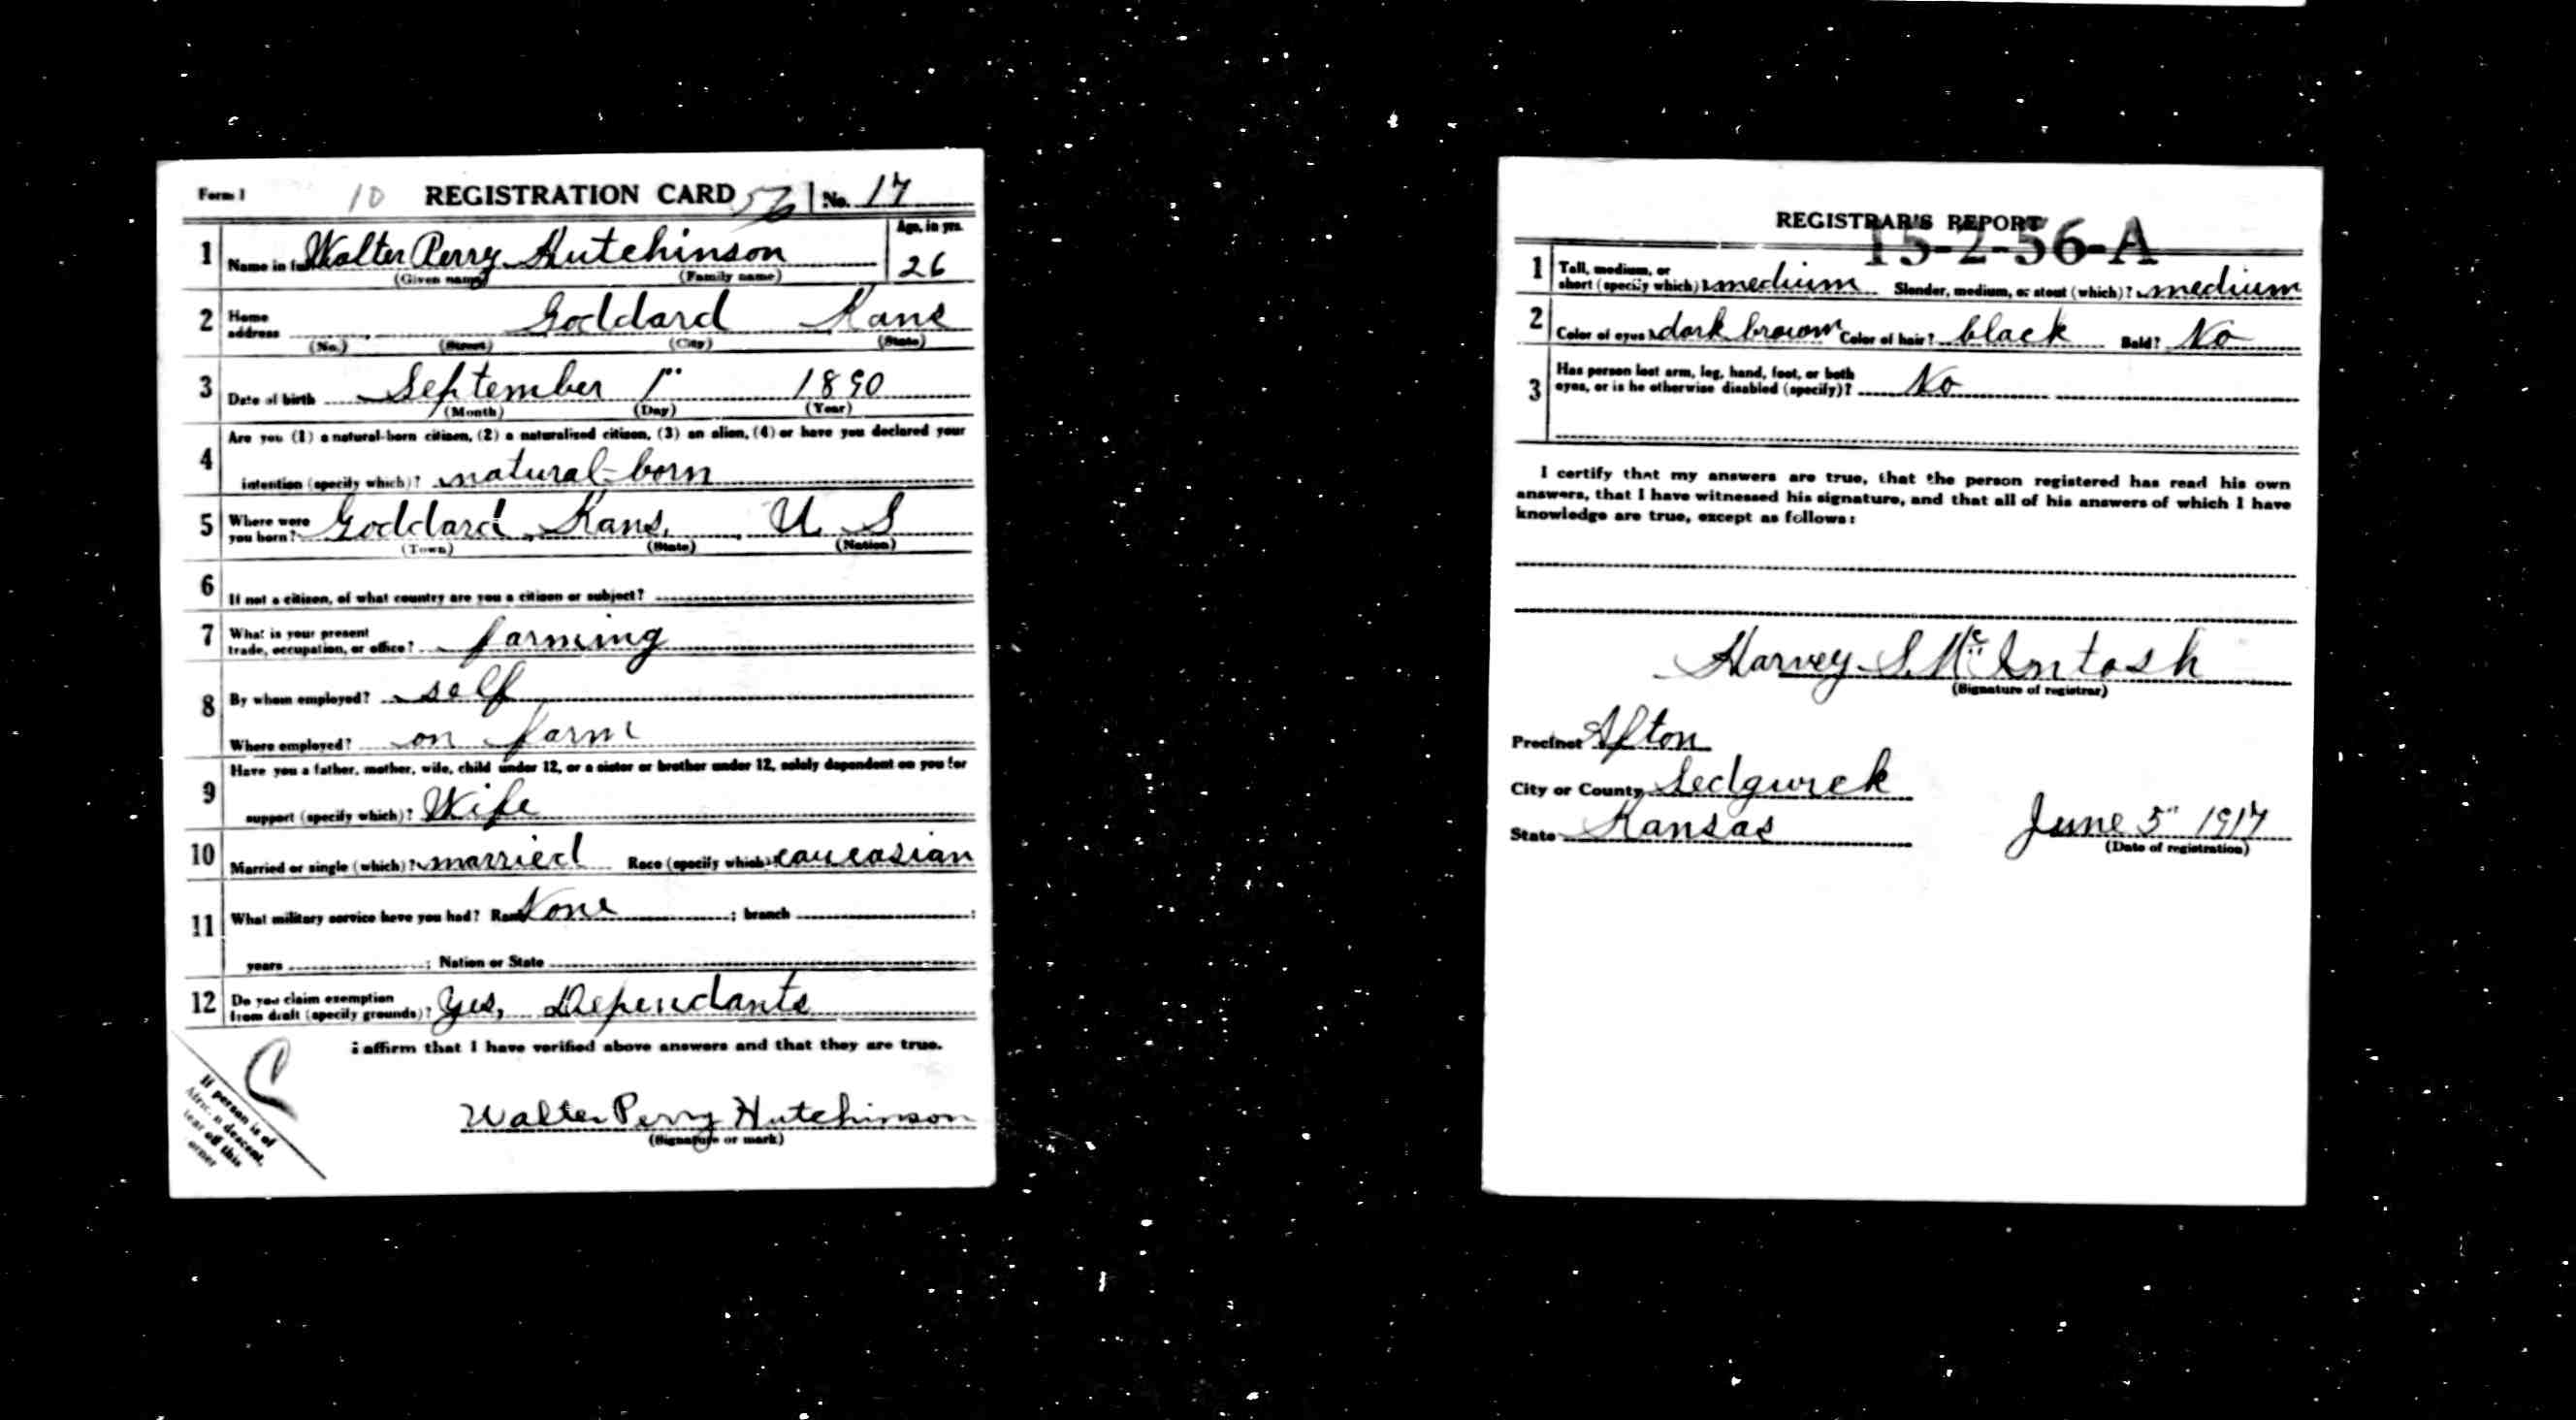 Form 1 10 REGISTRATION CARD 56 No. 17
1 Name in full Walter Perry Hutchinson Age, in yrs. 26
(Given name) (Family name)
2 Home address Goddard Kans
(No.) (Street) (City) (State)
3 Date of birth September 1" 1890
(Month) (Day) (Year)
4 Are you (1) a natural-born citizen, (2) a naturalized citizen, (3) an alien, (4) or have you declared your
intention (specify which)? natural-born
5 Where were you born? Goddard Kans, U S
(Town) (State) (Nation)
6 If not a citizen, of what country are you a citizen or subject?
7 What is your present trade, occupation, or office? farming
8 By whom employed? self
Where employed? on farm
9 Have you a father, mother, wife, child under 12, or a sister or brother under 12, solely dependent on you for
support (specify which)? Wife
10 Married or single (which)? married Race (specify which)? caucasian
11 What military service have you had? Rank None ; branch ;
years ; Nation or State
12 Do you claim exemption from draft (specify grounds)? Yes, Dependants
I affirm that I have verified above answers and that they are true.
C
Walter Perry Hutchinson
(Signature or mark)
If person is of
African descent,
tear off this
corner
REGISTRAR'S REPORT
15-2-56-A
1 Tall, medium, or short (specify which)? medium Slender, medium, or stout (which)? medium
2 Color of eyes? dark brown Color of hair? black Bald? No
3 Has person lost arm, leg, hand, foot, or both
eyes, or is he otherwise disabled (specify)? No
I certify that my answers are true, that the person registered has read his own
answers, that I have witnessed his signature, and that all of his answers of which I have
knowledge are true, except as follows:
Harvey S. McIntosh
(Signature of registrar)
Precinct Afton
City or County Sedgwick
State Kansas June 5" 1917
(Date of registration)